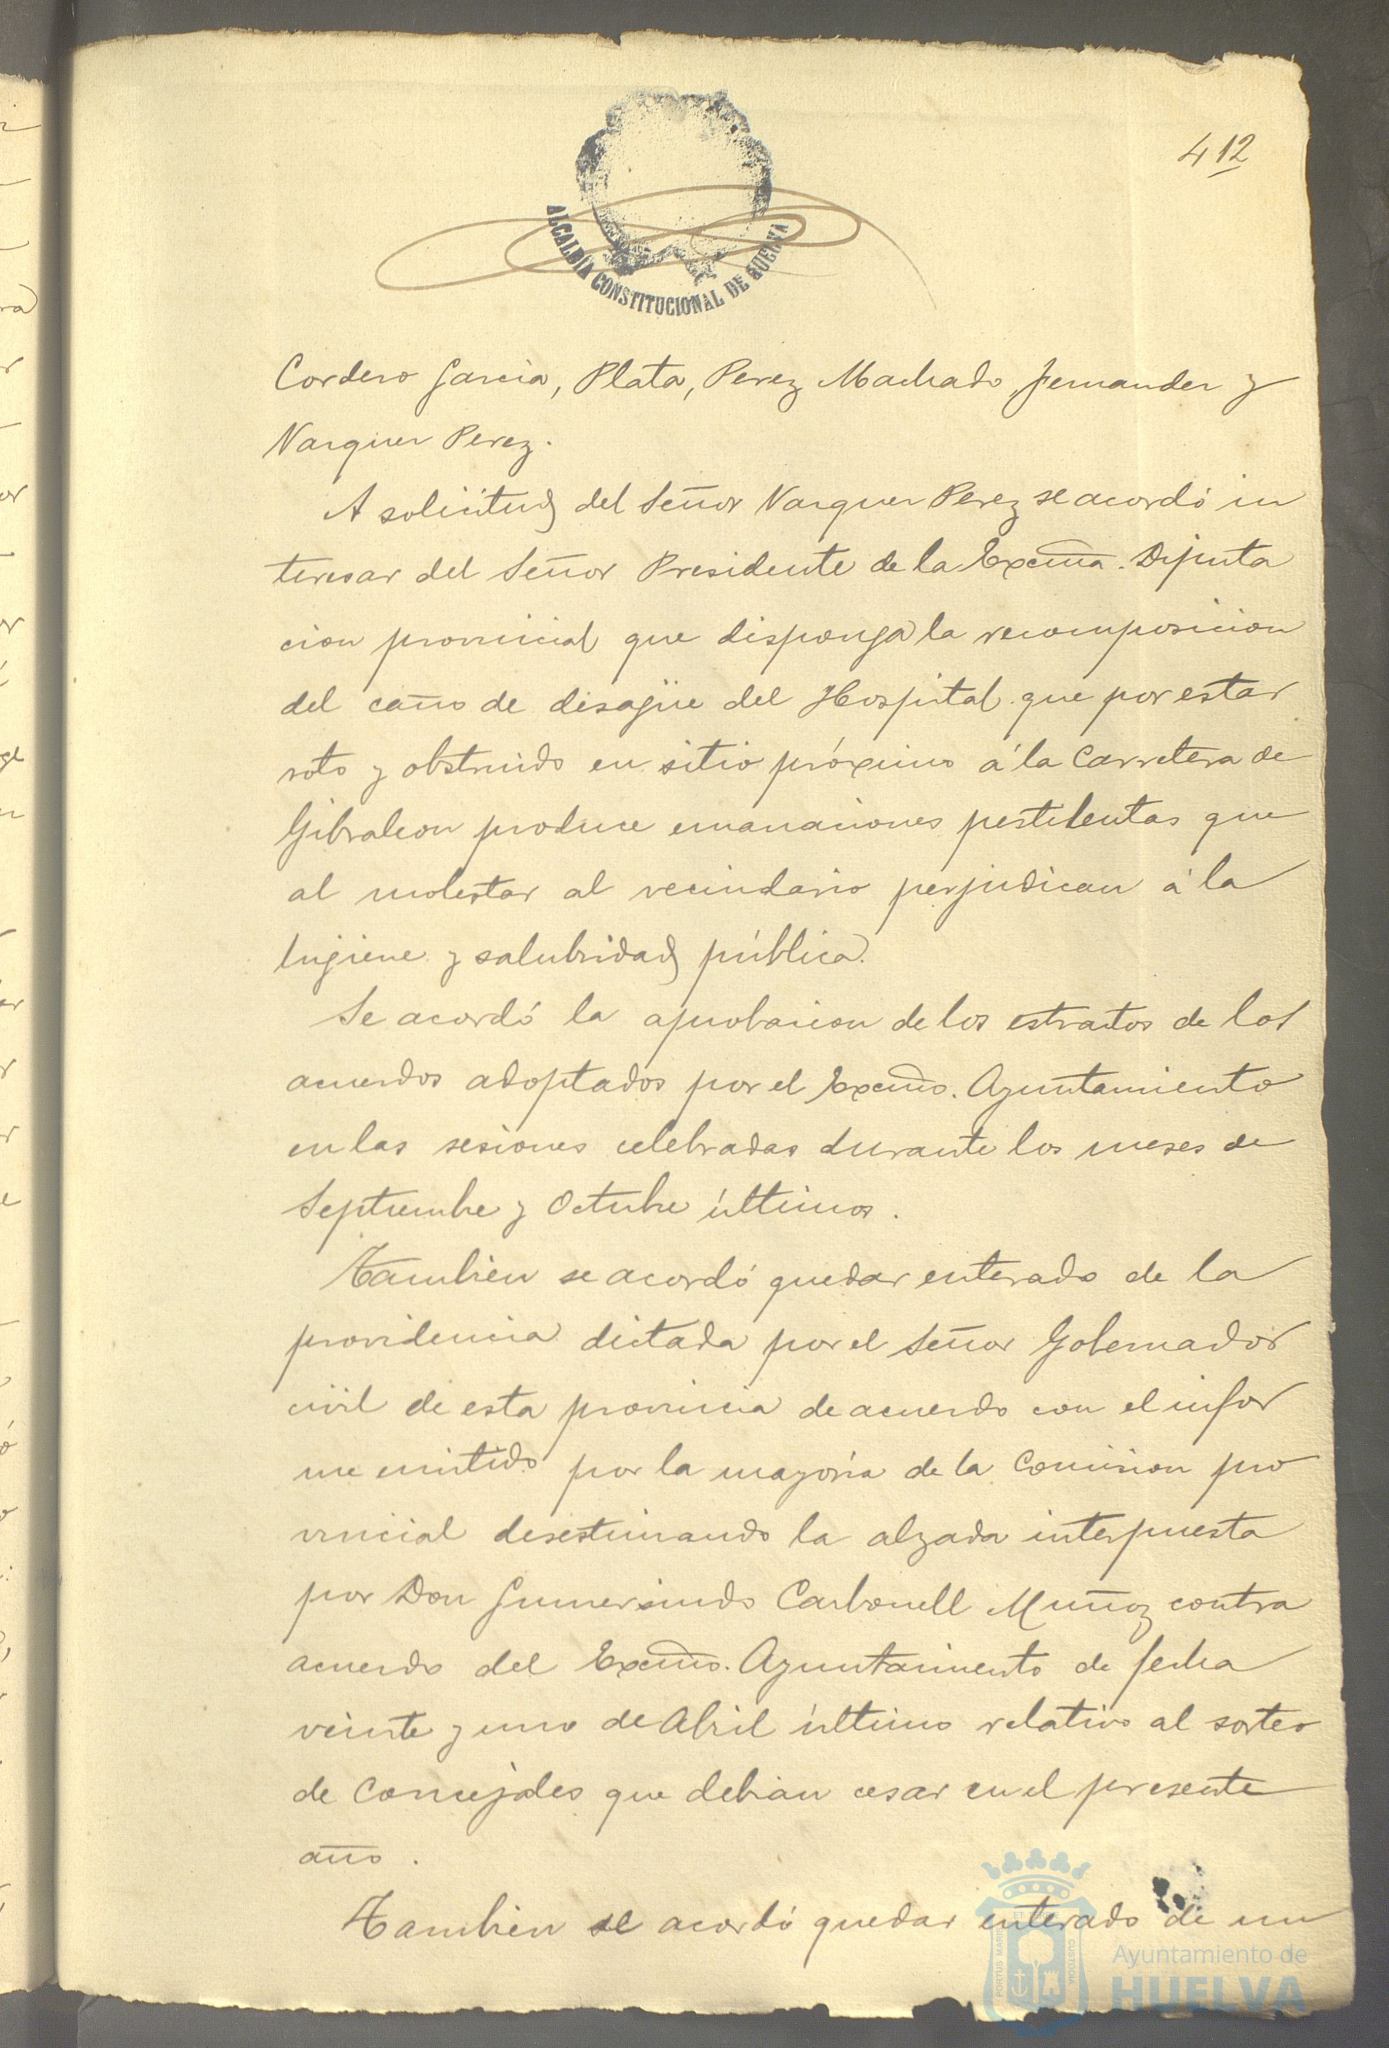 412
ALCALDIA CONSTITUCIONAL DE HUELVA
Cordero Garcia, Plata, Perez Machado, Fernandez y
Vazquez Perez.
A solicitud del Señor Vazquez Perez se acordó in
teresar del Señor Presidente de la Excma. Diputa
cion provincial que disponga la recomposicion
del caño de desagüe del Hospital que por estar
roto y obstruido en sitio próximo á la Carretera de
Gibraleon produce emanaciones pestilentas que
al molestar al vecindario perjudican á la
higiene y salubridad pública.
Se acordó la aprobacion de los estractos de los
acuerdos adoptados por el Excmo. Ayuntamiento
en las sesiones celebradas durante los meses de
Septiembre y Octubre últimos.
Tambien se acordó quedar enterado de la
providencia dictada por el Señor Gobernador
civil de esta provincia de acuerdo con el infor
me emitido por la mayoría de la Comision pro
vincial desestimando la alzada interpuesta
por Don Gumersindo Carbonell Muñoz contra
acuerdo del Excmo. Ayuntamiento de fecha
veinte y uno de Abril último relativo al sorteo
de Concejales que debian cesar en el presente
año.
Tambien se acordó quedar enterado de un
PORTUS MARIS
CUSTODIA
Ayuntamiento de
HUELVA